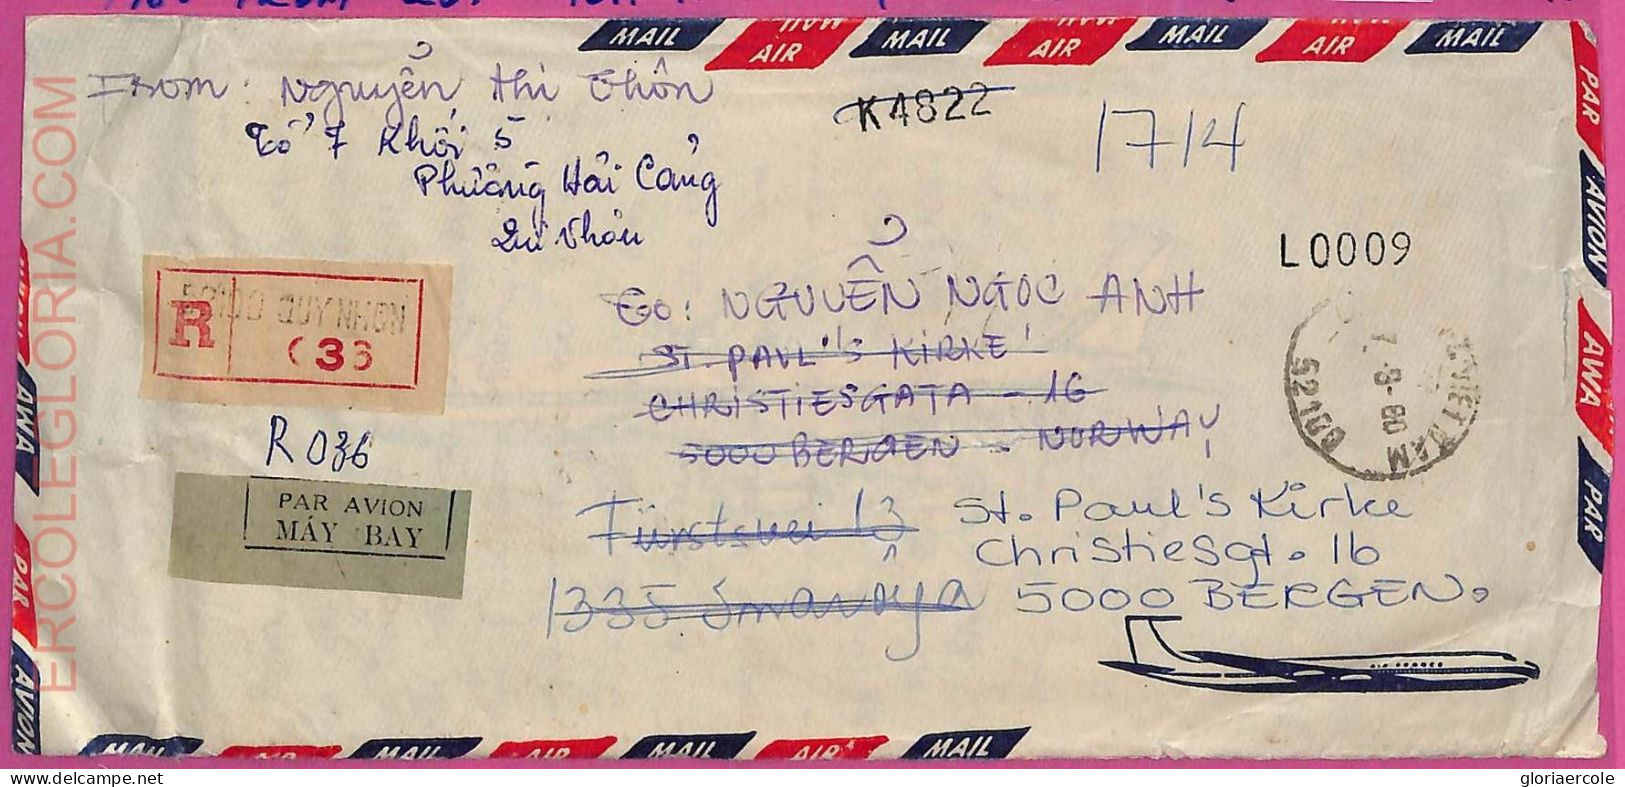 MAIL AIR MAIL AIR MAIL AIR MAIL
From: Nguyễn thi Thôn
Tổ 7 Khối 5
Phường Hải Cảng
Qui Nhơn
K4822
1714
L0009
R QUY NHON
036
R 036
PAR AVION
MÁY BAY
To: NGUYỄN NGOC ANH
ST PAUL'S KIRKE
CHRISTIESGATA - 16
5000 BERGEN - NORWAY
VIETNAM
7-8-80
52125
Fürstsvei 13
1335 Snarøya
St. Paul's Kirke
Christiesgt. 16
5000 BERGEN.
PAR AVION AWA PAR
AWA PAR AVION
MAIL AIR MAIL AIR MAIL AIR MAIL
ERCOLEGLORIA.COM
gloriaercole
delcampe.net